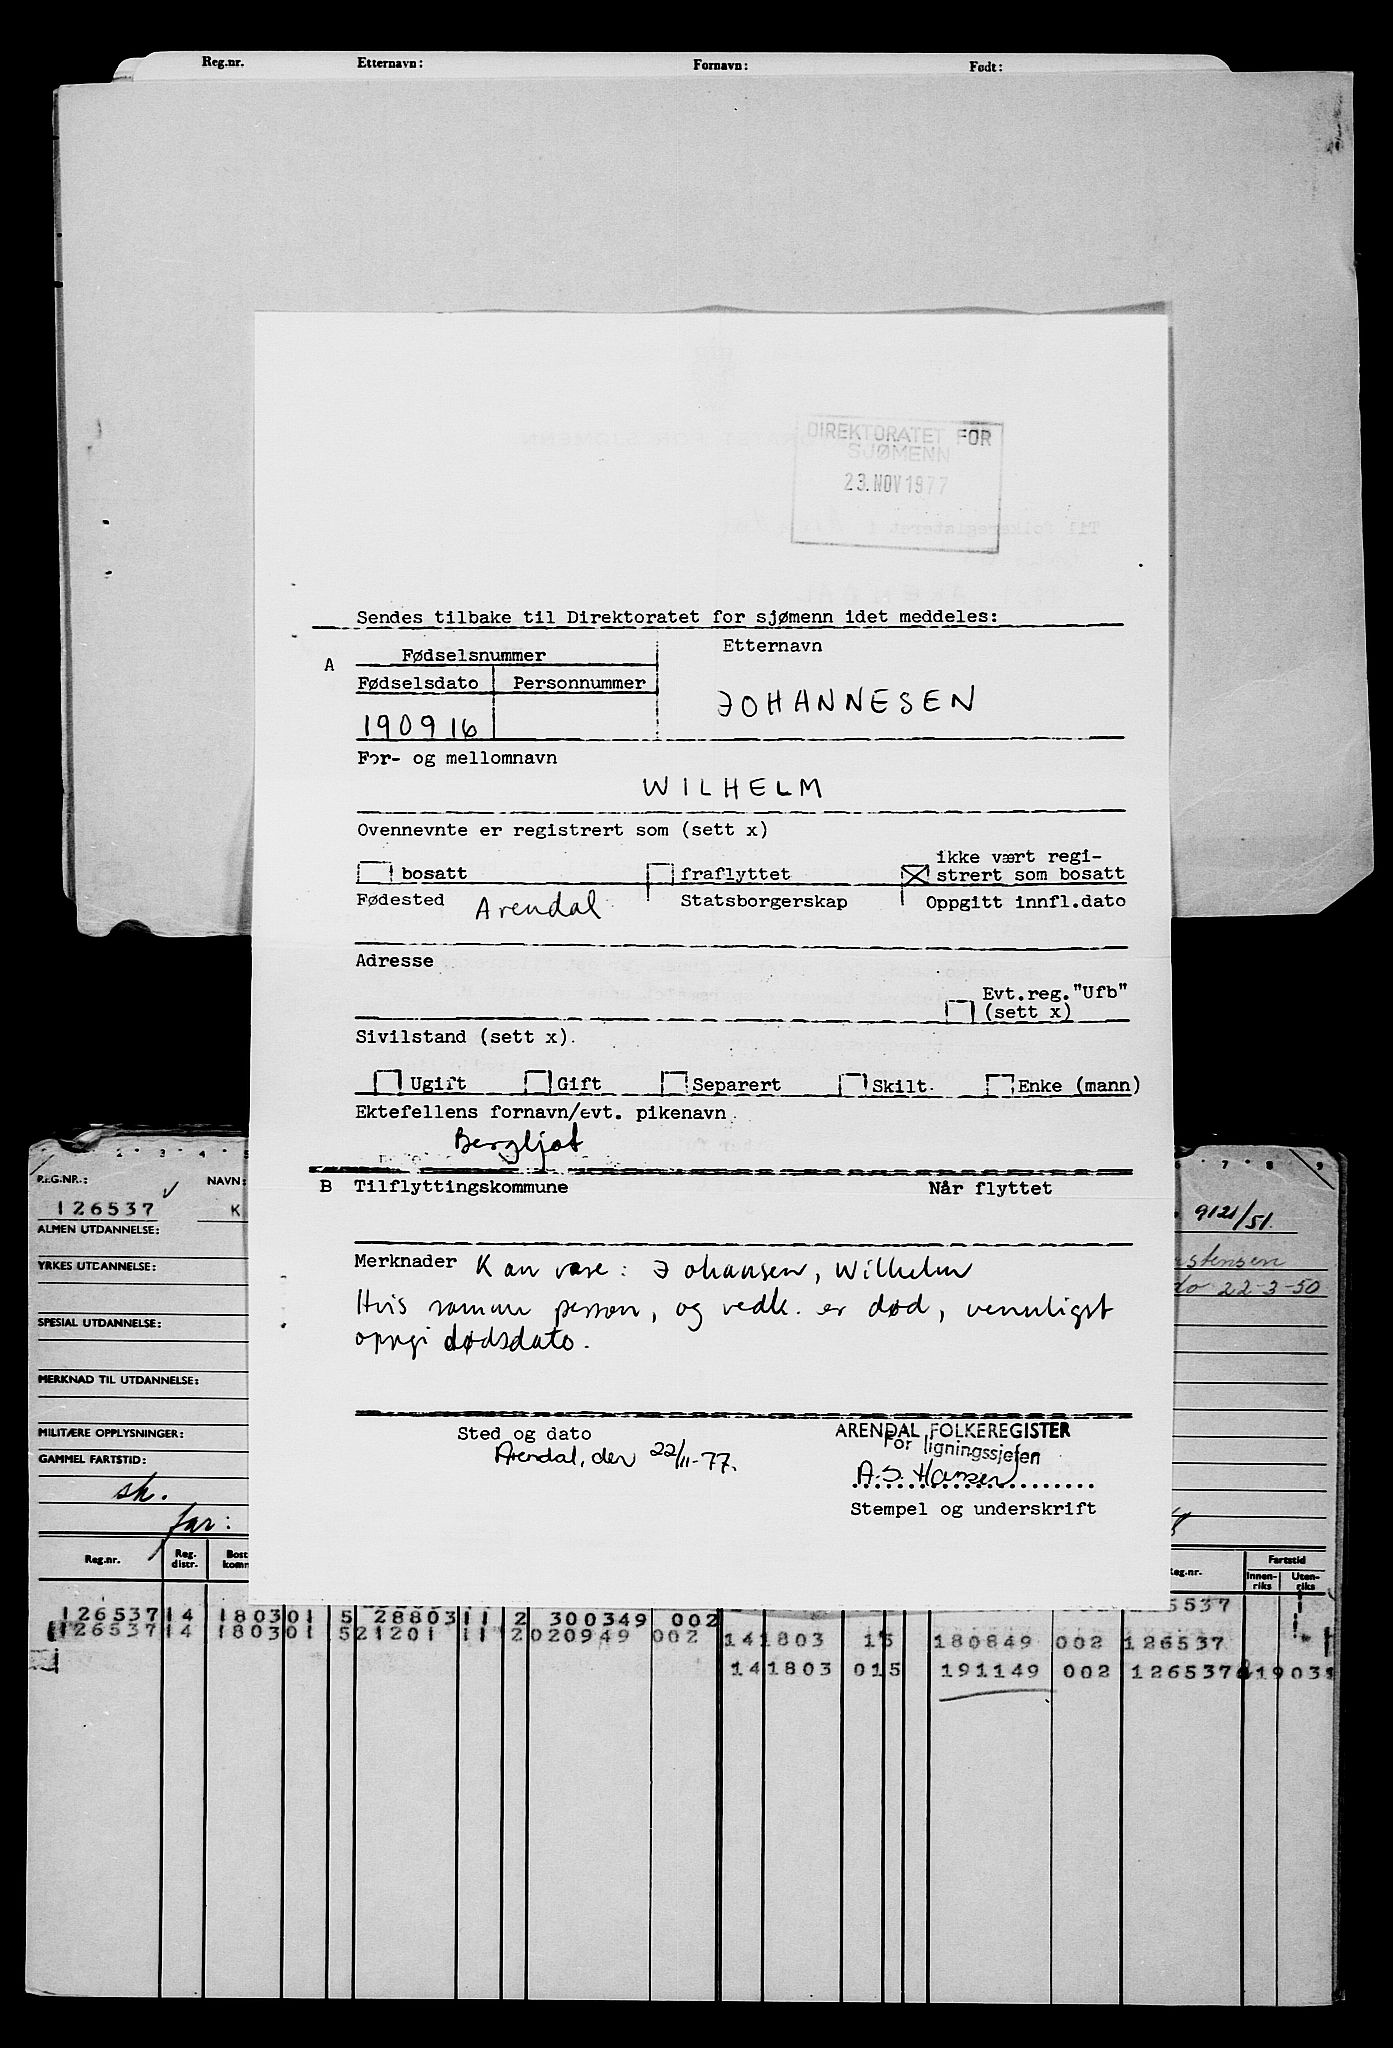 Reg.nr. Etternavn: Fornavn: Født:
DIREKTORATET FOR
SJØMENN
23. NOV 1977
Sendes tilbake til Direktoratet for sjømenn idet meddeles:
A Fødselsnummer Etternavn
Fødselsdato Personnummer
190916 JOHANNESEN
For- og mellomnavn
WILHELM
Ovennevnte er registrert som (sett x)
bosatt fraflyttet ikke vært regi-
strert som bosatt
Fødested Arendal Statsborgerskap Oppgitt innfl.dato
Adresse
Evt.reg."Ufb"
(sett x)
Sivilstand (sett x).
Ugift Gift Separert Skilt. Enke (mann)
Ektefellens fornavn/evt. pikenavn
Bergljot
B Tilflyttingskommune Når flyttet
Merknader Kan være: Johansen, Wilhelm
Hvis samme person, og vedk. er død, vennligst
oppgi dødsdato.
Sted og dato
Arendal, den 22/11-77.
ARENDAL FOLKEREGISTER
For ligningssjefen
A.S. Hansen
Stempel og underskrift
REG.NR.: NAVN:
126537 K
9121/51
ALMEN UTDANNELSE:
YRKES UTDANNELSE:
22-3-50
SPESIAL UTDANNELSE:
MERKNAD TIL UTDANNELSE:
MILITÆRE OPPLYSNINGER:
GAMMEL FARTSTID:
sk.
far:
Reg.nr. Reg. distr. Bost. komm eg.nr. Fartstid
Innen-riks Uten-riks
126537 14 1803 01 5 28803 11 2 300349 002 5537
126537 14 1803 01 5 21201 11 2 020949 002 141803 15 180849 002 126537
141803 015 191149 002 126537